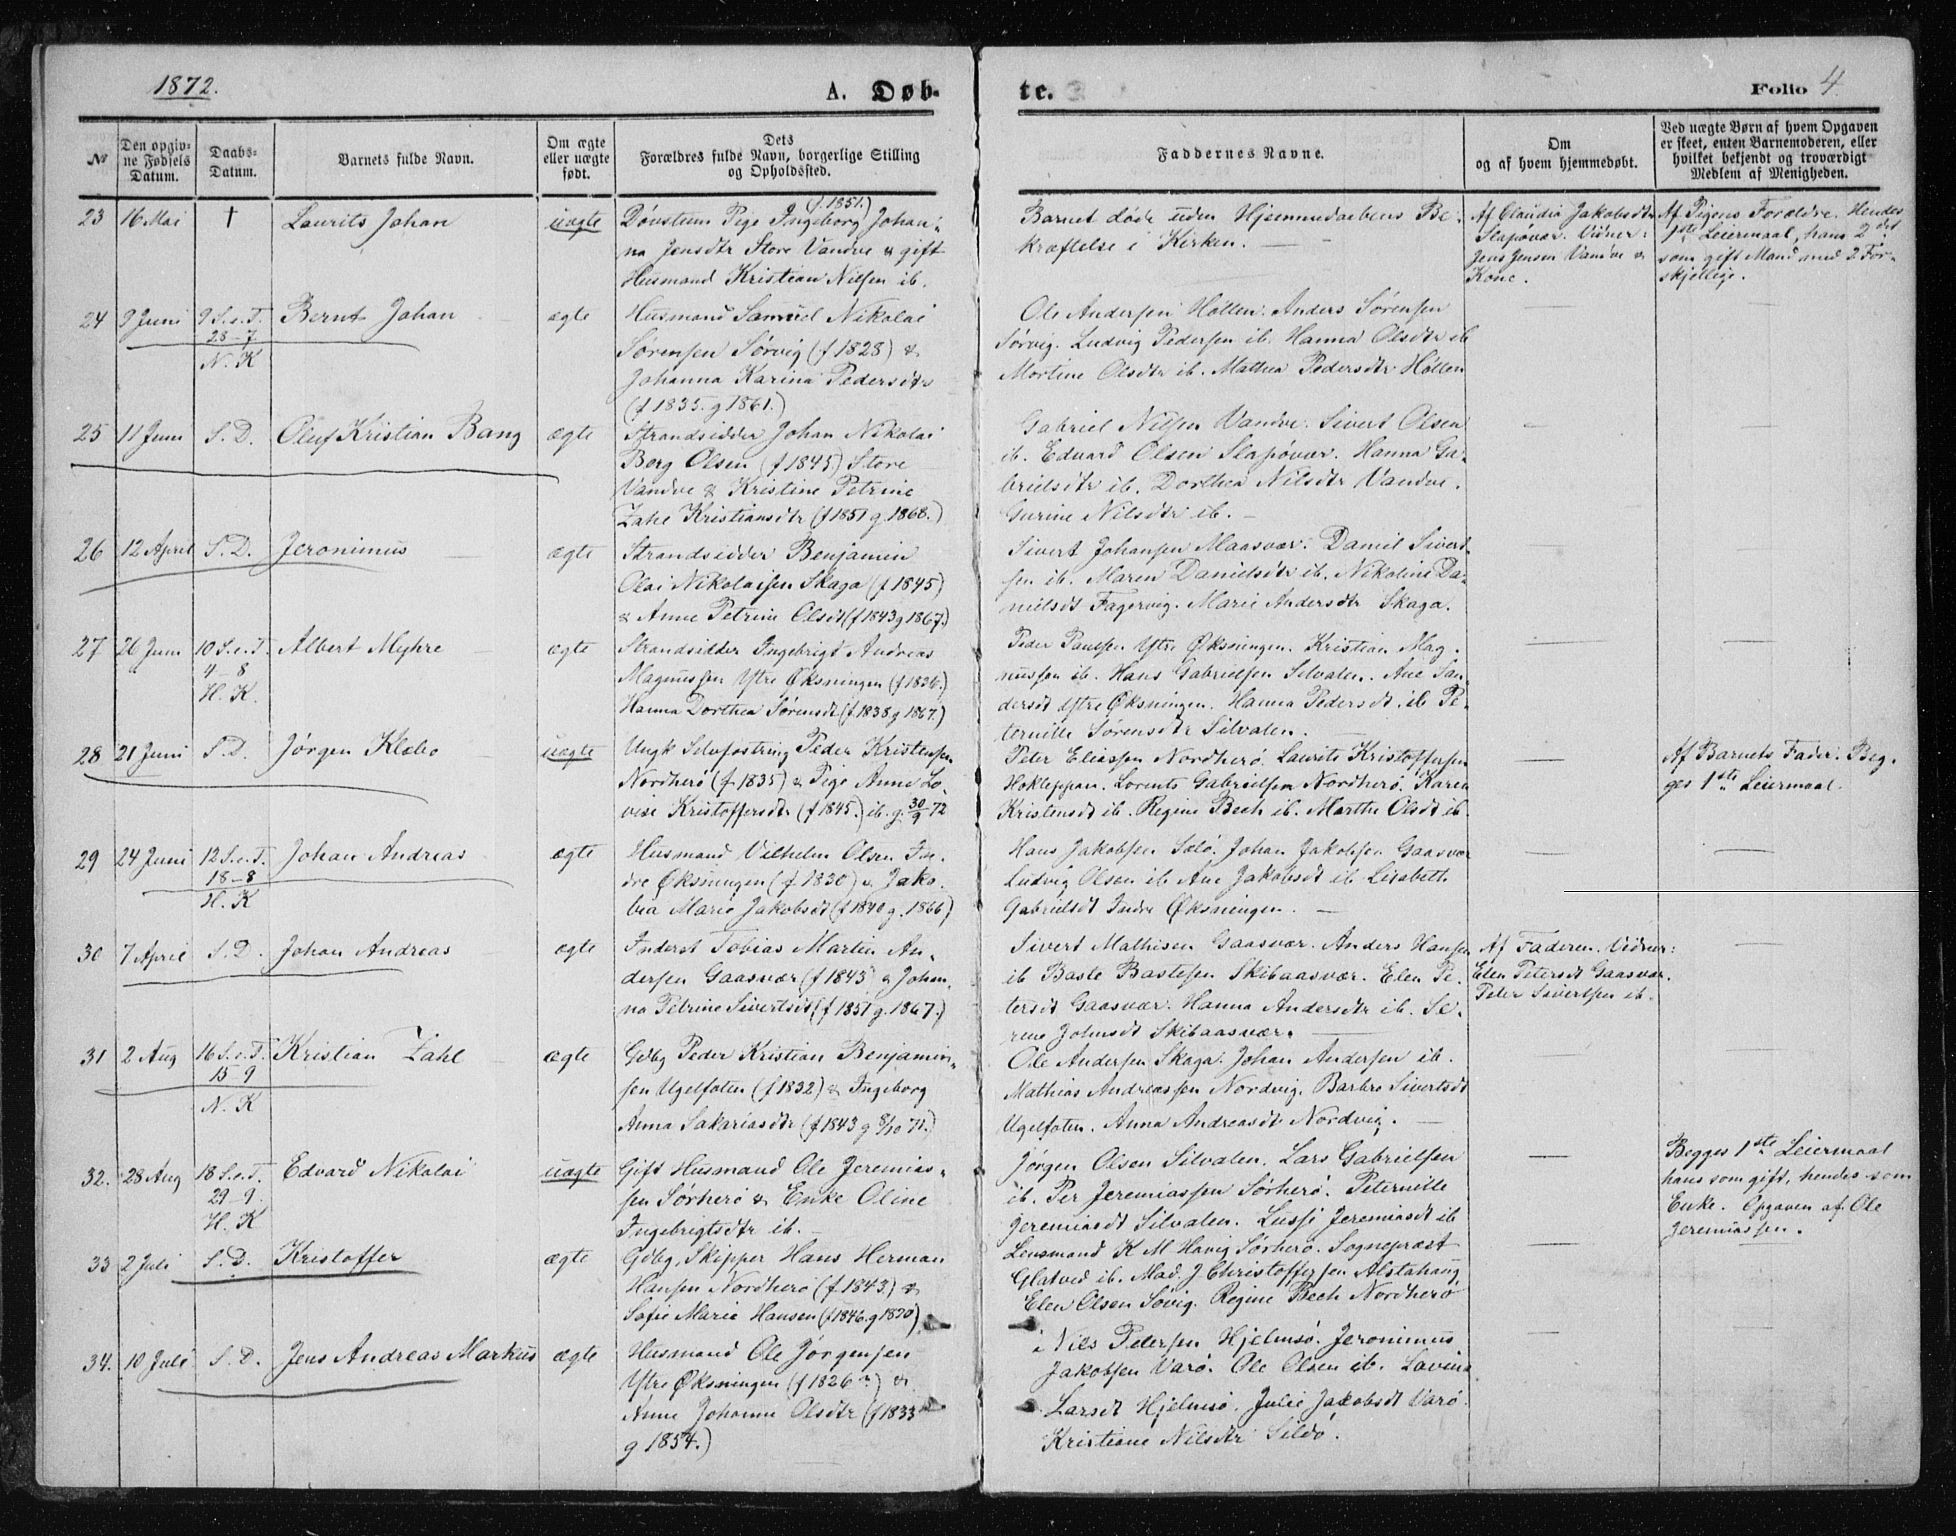 1872.
A. Døb-
te.
Folio 4
№
Den opgiv-
ne Fødsels
Datum.
Daabs-
Datum.
Barnets fulde Navn.
Om ægte
eller uægte
født.
Dets
Forældres fulde Navn, borgerlige Stilling
og Opholdssted.
Faddernes Navne.
Om
og af hvem hjemmedøbt.
Ved uægte Børn af hvem Opgaven
er skeet, enten Barnemoderen, eller
hvilket bekjendt og troværdigt
Medlem af Menigheden.
23 16 Mai † Laurits Johan uægte
(f. 1851.)
Døvstum Pige Ingeborg Johan-
na Jensdtr Store Vandve & gift
Husmand Kristian Nilsen ib.
Barnet døde uden Hjemmedaabens Be-
kræftelse i Kirken. —
Af Claudia Jakobsdtr
Slapøvær. Vidner:
Jens Jensen Vandve &
Kone.
Af Pigens Forældre. Hendes
1ste Leiermaal, hans 2det
som gift Mand med 2 For-
skjellige.
24 9 Juni 9 S.e.T.
28-7
N. K
Bernt Johan ægte
Husmand Samuel Nikolai
Sørensen Sørvig (f 1828) &
Johanna Karina Pedersdtr
(f 1835. g 1861.)
Ole Andersen Holten. Anders Sørensen
Sørvig. Ludvig Pedersen ib. Hanna Olsdtr ib
Mortine Olsdtr ib. Mathea Pedersdtr Holten
25 11 Juni S. D. Oluf Kristian Bang ægte
Strandsidder Johan Nikolai
Berg Olsen (f 1845) Store
Vandve & Kristine Petrine
Zahl Kristiansdtr (f 1851 g. 1868.)
Gabriel Nilsen Vandve. Sivert Olsen
ib. Edvard Olsen Slapøvær. Hanna Ga-
brielsdtr ib. Dorthea Nilsdtr Vandve.
Gurine Nilsdtr ib. —
26 12 April S. D. Jeronimus ægte
Strandsidder Benjamin
Olai Nikolaisen Skaga (f 1845)
& Anne Petrine Olsdt (f 1843 g 1867.)
Sivert Johansen Maasvær. Daniel Sivert-
sen ib. Maren Danielsdtr ib. Nikoline Da-
nielsdt Fagervig. Marie Andersdtr Skaga.
27 26 Juni 10 S.e.T.
4-8
H. K.
Albert Myhre ægte
Strandsidder Ingebrigt Andreas
Magnussen Ytre Øksningen (f 1836.)
Hanna Dorthea Sørensdt (f 1838 g 1867.)
Peder Paulsen Ytre Øksningen. Kristian Mag-
nussen ib. Hans Gabrielsen Silvalen. Ane San-
dersdt Ytre Øksningen. Hanna Pedersdt. ib Pe-
ternille Sørensdtr Silvalen. —
28 21 Juni S. D. Jørgen Klebo uægte
Ungk Selvfostring Peder Kristensen
Nordherø (f. 1835) & Pige Anne Lo-
vise Kristoffersdtr (f 1845.) ib. g. 30/9 72
Peter Eliassen Nordherø. Laurits Kristoffersen
Hokleppan. Lorents Gabrielsen Nordherø. Karen
Kristensdt ib. Regine Bech ib. Marthe Olsdt ib.
Af Barnets Fader. Beg-
ges 1ste Leiermaal.
29 24 Juni 12 S.e.T.
18-8
H. K
Johan Andreas ægte
Husmand Vilhelm Olsen In-
dre Øksningen (f. 1830) & Jako-
bia Marie Jakobsdt (f 1840 g. 1866)
Hans Jakobsen Sælø. Johan Jakobsen Gaasvær
Ludvig Olsen ib. Ane Jakobsdt ib Lisabeth
Gabrielsdt Indre Øksningen. —
30 7 April S. D. Johan Andreas ægte
Inderst Tobias Martin An-
dersen Gaasvær (f 1843) & Johan-
na Petrine Sivertsdt (f 1851 g. 1867.)
Sivert Mathisen Gaasvær. Anders Hansen
ib Basle Bastesen Skibaasvær. Elen Pe-
tersdt Gaasvær. Hanna Andersdtr ib. Se-
rine Johnsdt Skibaasvær. —
Af Faderen. Vidner:
Elen Petersdt Gaasvær.
Peter Sivertsen ib.
31 2 Aug 16 S.e.T.
15-9
N. K
Kristian Zahl ægte
Gdbg Peder Kristian Benjamin-
sen Ugelfoten (f 1832) & Ingeborg
Anna Sakariasdtr (f 1843 g 8/10 71.)
Ole Andersen Skaga. Johan Andersen ib.
Mathias Andreassen Nordvig. Barbro Sivertsdt
Ugelfoten. Anna Andreasdt Nordvig. —
32. 28 Aug 18 S.e.T.
29-9.
H. K
Edvard Nikolai uægte
Gift Husmand Ole Jeremias-
sen Sørherø & Enke Oline
Ingebrigtsdtr ib. —
Jørgen Olsen Silvalen. Lars Gabrielsen
ib. Per Jeremiassen Sørherø. Peternille
Jeremiasdt Silvalen. Lussi Jeremiasdt ib
Begges 1ste Leiermaal
hans som gift, hendes som
Enke. Opgaven af Ole
Jeremiassen.
33 2 Juli S. D. Kristoffer ægte
Gdbg, Skipper Hans Herman
Hansen Nordherø (f. 1843.) &
Sofie Marie Hansen (f 1846. g 1870)
Lensmand K M Havig Sørherø. Sogneprest
Glatved ib. Mad. J Christoffersen Alstahaug
Elen Olsen Søvig. Regine Bech Nordherø
34. 10 Juli S. D. Jens Andreas Markus ægte
Husmand Ole Jørgensen
Ytre Øksningen (f 1826 ?) &
Anne Johanne Olsdtr (f 1833
g 1854.)
Nils Petersen Hjelmsø. Jeronimus
Jakobsen Varø. Ole Olsen ib. Lavina
Larsdt Hjelmsø. Julie Jakobsdt Varø.
Kristiane Nilsdtr Sildø.